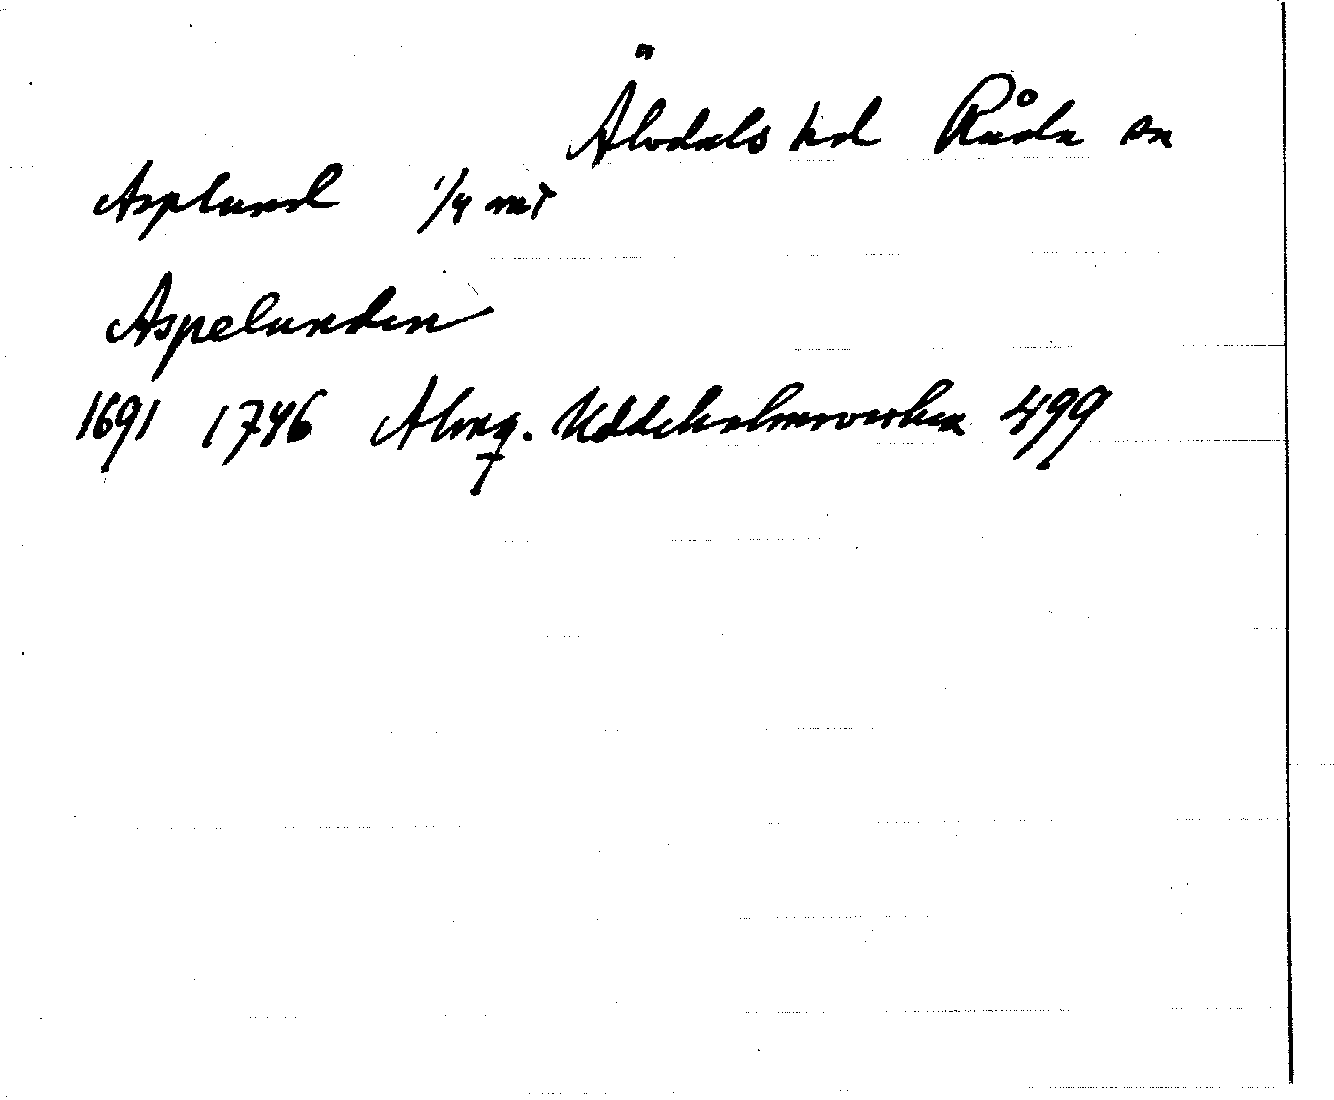 Älvdals hd Råda sn
Asplund 1/4 mt
Aspelunden
1691 1746 Almq. Uddeholmsverken 499